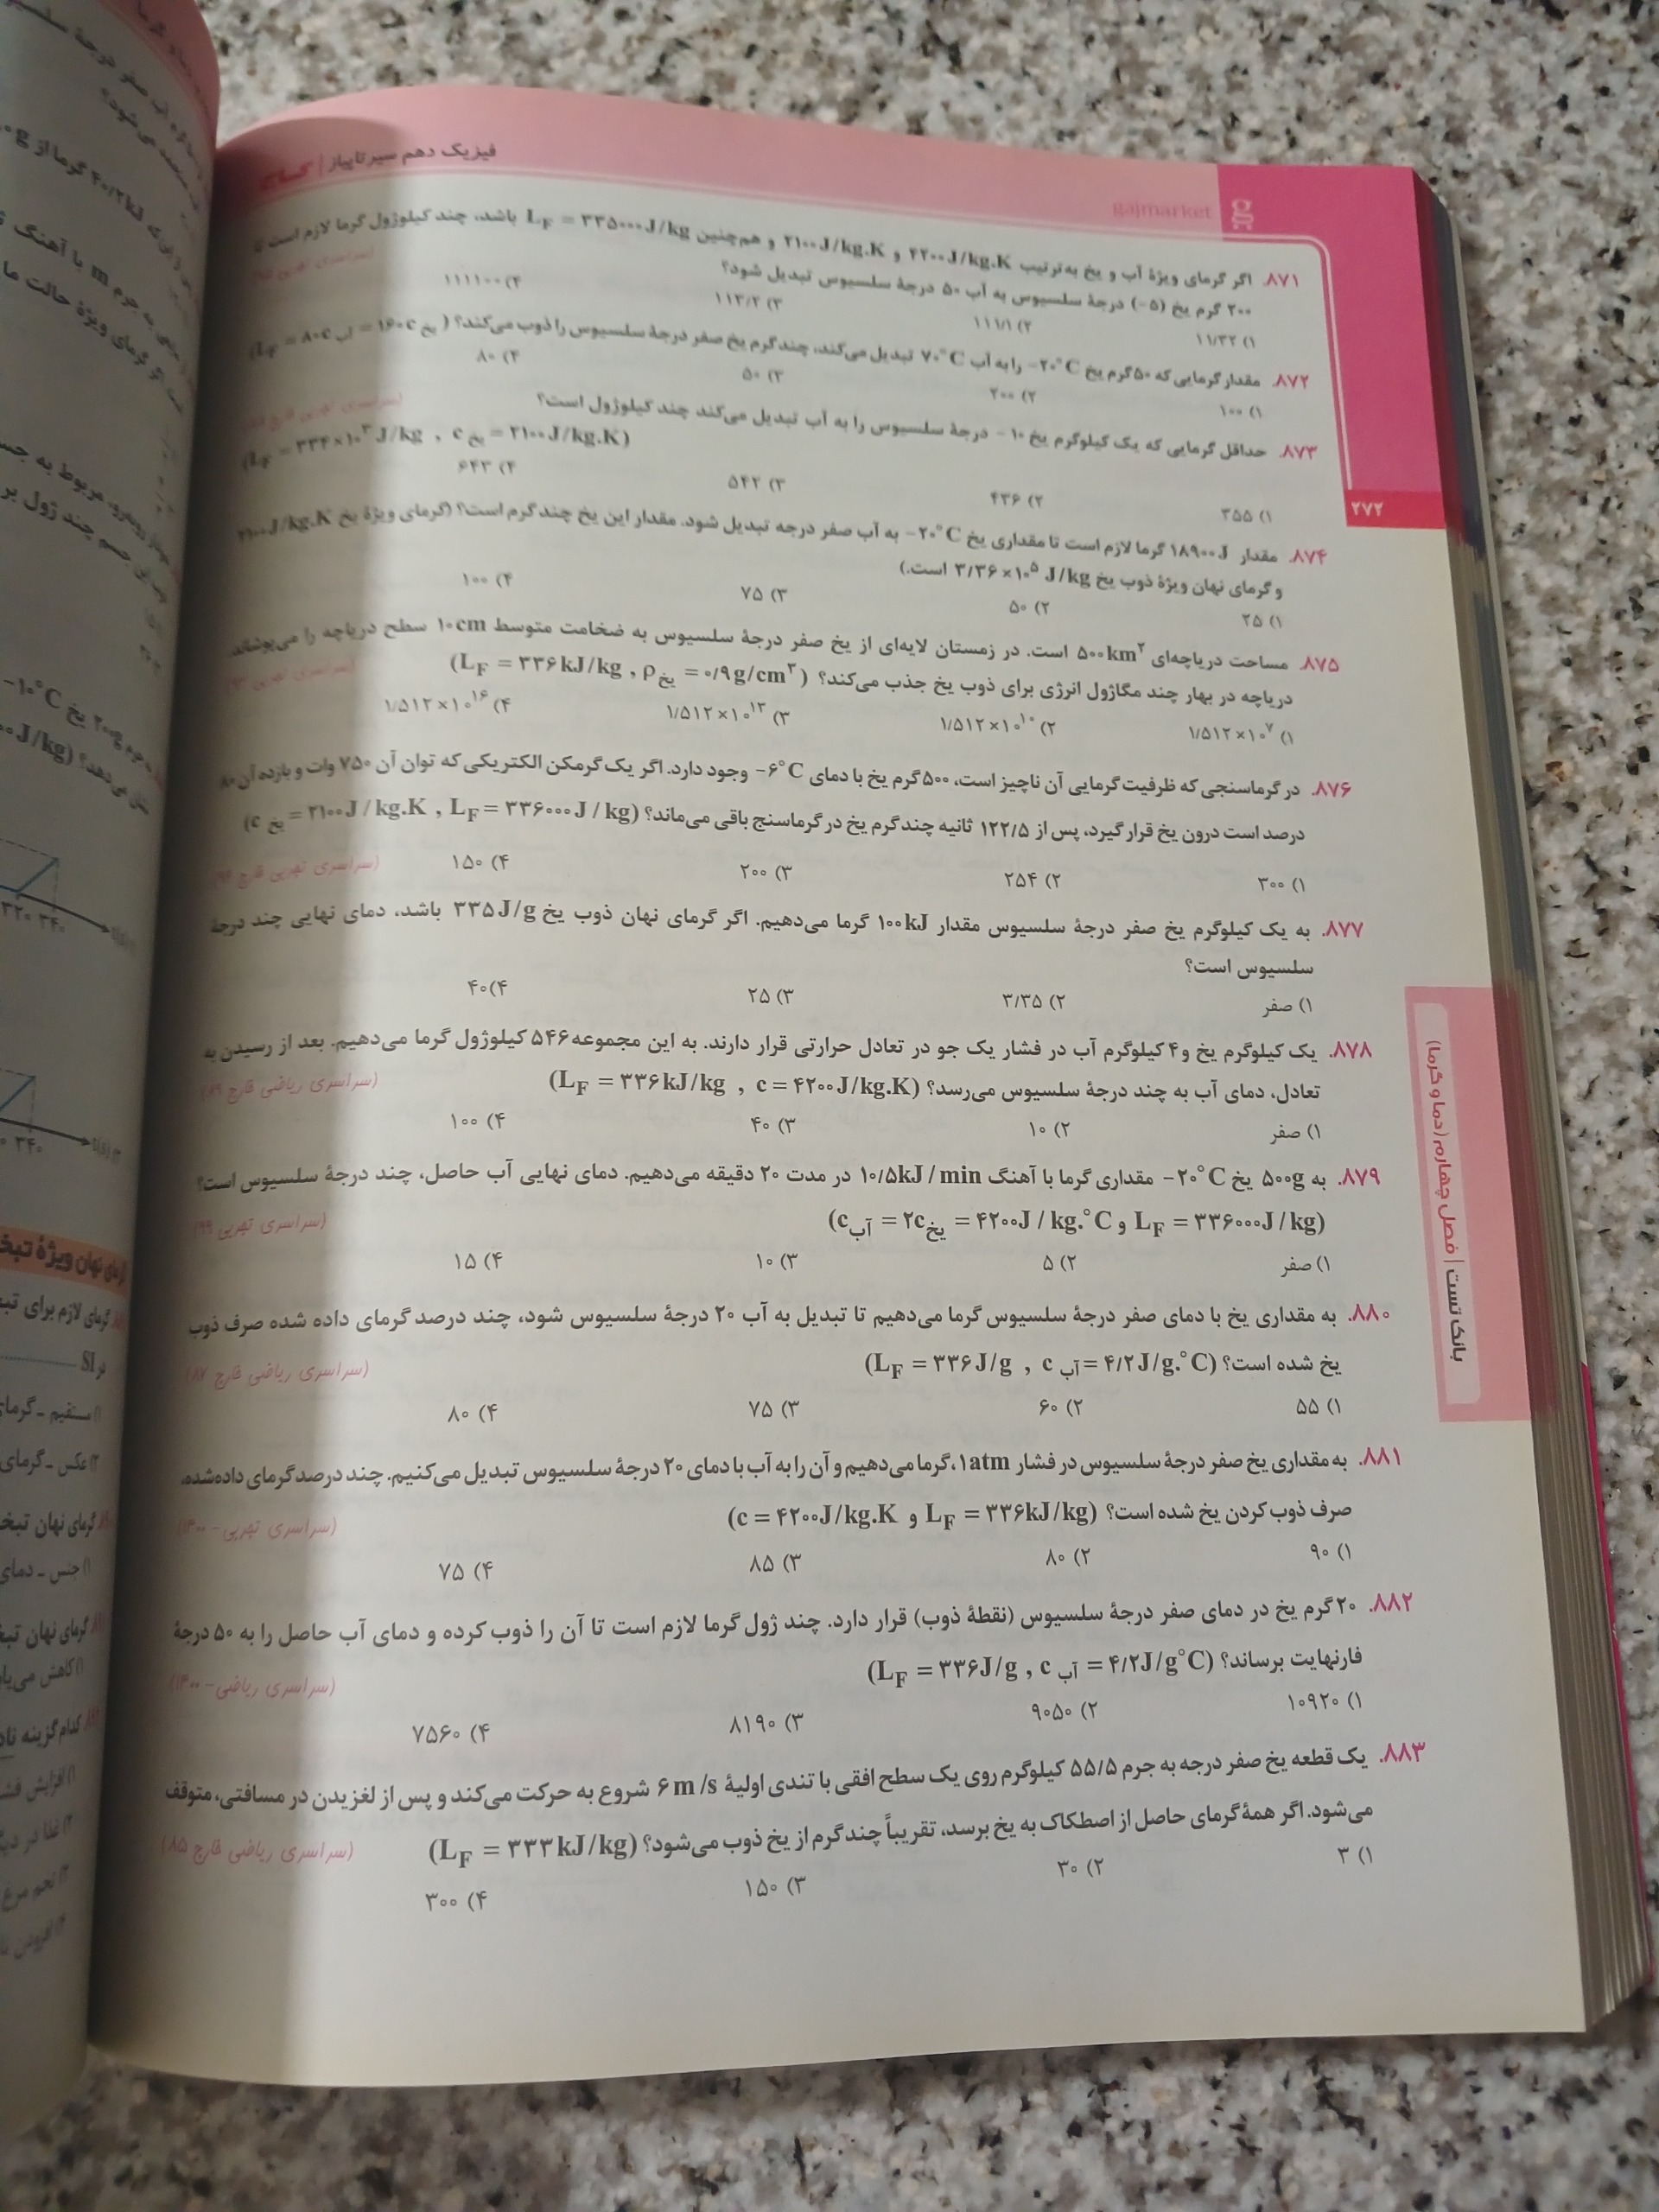 فیزیک دهم سیر تا پیاز | گاج
gajmarket
۲۷۲
۸۷۱. اگر گرمای ویژهٔ آب و یخ به‌ترتیب ۴۲۰۰J/kg.K و ۲۱۰۰J/kg.K و هم‌چنین L_F = ۳۳۵۰۰۰J/kg باشد، چند کیلوژول گرما لازم است تا
۲۰۰ گرم یخ (۵-) درجهٔ سلسیوس به آب ۵۰ درجهٔ سلسیوس تبدیل شود؟
۱) ۱۱/۳۲ ۲) ۱۱۱/۱ ۳) ۱۱۳/۲ ۴) ۱۱۱۱۰۰
۸۷۲. مقدار گرمایی که ۵۰ گرم یخ ۲۰°C- را به آب ۷۰°C تبدیل می‌کند، چند گرم یخ صفر درجهٔ سلسیوس را ذوب می‌کند؟ (L_F = ۸۰c آب = ۱۶۰c یخ)
۱) ۱۰۰ ۲) ۲۰۰ ۳) ۵۰ ۴) ۸۰
۸۷۳. حداقل گرمایی که یک کیلوگرم یخ ۱۰- درجهٔ سلسیوس را به آب تبدیل می‌کند چند کیلوژول است؟
(L_F = ۳۳۴×۱۰^۳ J/kg , c یخ = ۲۱۰۰J/kg.K)
۱) ۳۵۵ ۲) ۴۳۶ ۳) ۵۴۲ ۴) ۶۴۳
۸۷۴. مقدار ۱۸۹۰۰J گرما لازم است تا مقداری یخ ۲۰°C- به آب صفر درجه تبدیل شود. مقدار این یخ چند گرم است؟ (گرمای ویژهٔ یخ ۲۱۰۰J/kg.K
و گرمای نهان ویژهٔ ذوب یخ ۳/۳۶×۱۰^۵ J/kg است.)
۱) ۲۵ ۲) ۵۰ ۳) ۷۵ ۴) ۱۰۰
۸۷۵. مساحت دریاچه‌ای ۵۰۰km^۲ است. در زمستان لایه‌ای از یخ صفر درجهٔ سلسیوس به ضخامت متوسط ۱۰cm سطح دریاچه را می‌پوشاند.
دریاچه در بهار چند مگاژول انرژی برای ذوب یخ جذب می‌کند؟ (L_F = ۳۳۶kJ/kg , ρ یخ = ۰/۹g/cm^۳)
۱) ۱/۵۱۲×۱۰^۷ ۲) ۱/۵۱۲×۱۰^۱۰ ۳) ۱/۵۱۲×۱۰^۱۳ ۴) ۱/۵۱۲×۱۰^۱۶
۸۷۶. در گرماسنجی که ظرفیت گرمایی آن ناچیز است، ۵۰۰ گرم یخ با دمای ۶°C- وجود دارد. اگر یک گرمکن الکتریکی که توان آن ۷۵۰ وات و بازده آن ۸۰
درصد است درون یخ قرار گیرد، پس از ۱۲۲/۵ ثانیه چند گرم یخ در گرماسنج باقی می‌ماند؟ (c یخ = ۲۱۰۰J/kg.K , L_F = ۳۳۶۰۰۰J/kg)
۱) ۳۰۰ ۲) ۲۵۴ ۳) ۲۰۰ ۴) ۱۵۰
۸۷۷. به یک کیلوگرم یخ صفر درجهٔ سلسیوس مقدار ۱۰۰kJ گرما می‌دهیم. اگر گرمای نهان ذوب یخ ۳۳۵J/g باشد، دمای نهایی چند درجهٔ
سلسیوس است؟
۱) صفر ۲) ۳/۳۵ ۳) ۲۵ ۴) ۴۰
۸۷۸. یک کیلوگرم یخ و ۴ کیلوگرم آب در فشار یک جو در تعادل حرارتی قرار دارند. به این مجموعه ۵۴۶ کیلوژول گرما می‌دهیم. بعد از رسیدن به
تعادل، دمای آب به چند درجهٔ سلسیوس می‌رسد؟ (L_F = ۳۳۶kJ/kg , c = ۴۲۰۰J/kg.K) (سراسری ریاضی خارج ۸۹)
۱) صفر ۲) ۱۰ ۳) ۴۰ ۴) ۱۰۰
۸۷۹. به ۵۰۰g یخ ۲۰°C- مقداری گرما با آهنگ ۱۰/۵kJ/min در مدت ۲۰ دقیقه می‌دهیم. دمای نهایی آب حاصل، چند درجهٔ سلسیوس است؟
(L_F = ۳۳۶۰۰۰J/kg و c آب = ۲c یخ = ۴۲۰۰J/kg.°C) (سراسری تجربی ۹۹)
۱) صفر ۲) ۵ ۳) ۱۰ ۴) ۱۵
۸۸۰. به مقداری یخ با دمای صفر درجهٔ سلسیوس گرما می‌دهیم تا تبدیل به آب ۲۰ درجهٔ سلسیوس شود، چند درصد گرمای داده شده صرف ذوب
یخ شده است؟ (L_F = ۳۳۶J/g , c آب = ۴/۲J/g.°C) (سراسری ریاضی خارج ۸۷)
۱) ۵۵ ۲) ۶۰ ۳) ۷۵ ۴) ۸۰
۸۸۱. به مقداری یخ صفر درجهٔ سلسیوس در فشار ۱atm، گرما می‌دهیم و آن را به آب با دمای ۲۰ درجهٔ سلسیوس تبدیل می‌کنیم. چند درصد گرمای داده‌شده،
صرف ذوب کردن یخ شده است؟ (L_F = ۳۳۶kJ/kg و c = ۴۲۰۰J/kg.K) (سراسری تجربی - ۱۴۰۰)
۱) ۹۰ ۲) ۸۰ ۳) ۸۵ ۴) ۷۵
۸۸۲. ۲۰ گرم یخ در دمای صفر درجهٔ سلسیوس (نقطهٔ ذوب) قرار دارد. چند ژول گرما لازم است تا آن را ذوب کرده و دمای آب حاصل را به ۵۰ درجهٔ
فارنهایت برساند؟ (L_F = ۳۳۶J/g , c آب = ۴/۲J/g°C) (سراسری ریاضی - ۱۴۰۰)
۱) ۱۰۹۲۰ ۲) ۹۰۵۰ ۳) ۸۱۹۰ ۴) ۷۵۶۰
۸۸۳. یک قطعه یخ صفر درجه به جرم ۵۵/۵ کیلوگرم روی یک سطح افقی با تندی اولیهٔ ۶m/s شروع به حرکت می‌کند و پس از لغزیدن در مسافتی، متوقف
می‌شود. اگر همهٔ گرمای حاصل از اصطکاک به یخ برسد، تقریباً چند گرم از یخ ذوب می‌شود؟ (L_F = ۳۳۳kJ/kg) (سراسری ریاضی خارج ۸۵)
۱) ۳ ۲) ۳۰ ۳) ۱۵۰ ۴) ۳۰۰
بانک تست | فصل چهارم (دما و گرما)